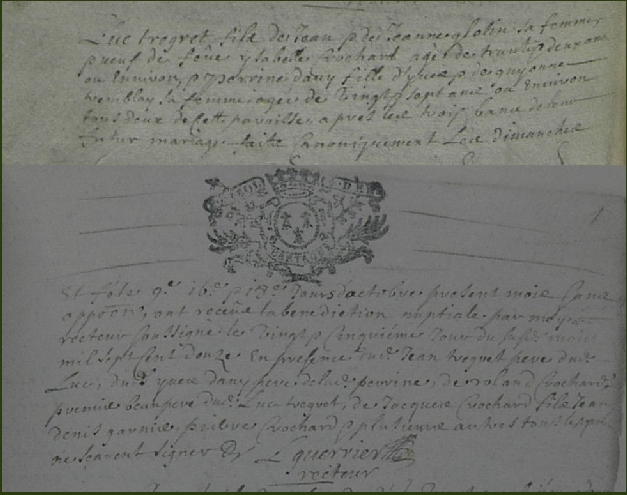 Luc tregret fils de Jean & de Jeanne glotin sa femme
veuf de feüe ysabelle Crochart agé de trante & deux ans
ou Environ, & perrine dauy fille d'yues & de guyonne
tremblay sa femme agee de Vingt & sept ans ou Environ
tous deux de cette paroisse, apres les trois bans de leur
futur mariage faite Canoniquement Les dimanches
Et fête 9.e 16.e & 18.e Jours d'octobre present mois sans
opposon, ont receüe la benediction nuptiale par moy
recteur soussigne le Vingt & Cinquiéme Jour du susd. mois
mil sept cent douze En presence dud. Jean tregret pere dud.
Luc, dud. yues dauy pere de lad. perrine, de roland Crochard
premier beaupere dud. Luc tregret, de Jacques Crochard fils Jean
denis garnier, pierre Crochard & plusieurs autres tous
ne scavent signer
L guerrier
recteur